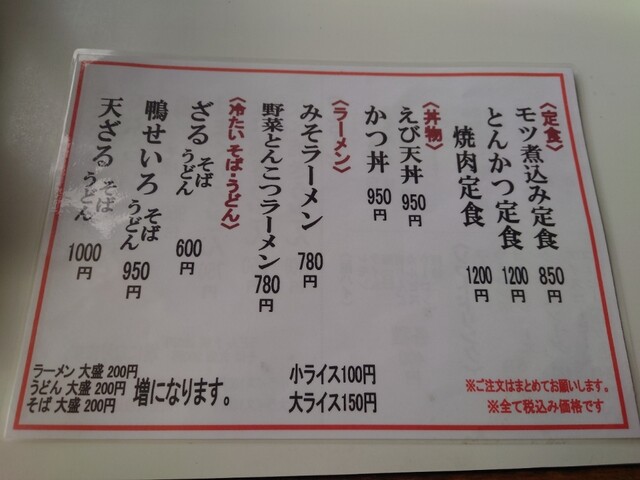 〈定食〉
モツ煮込み定食 850円
とんかつ定食 1200円
焼肉定食 1200円
〈丼物〉
えび天丼 950円
かつ丼 950円
〈ラーメン〉
みそラーメン 780円
野菜とんこつラーメン 780円
〈冷たいそば・うどん〉
ざる そば うどん 600円
鴨せいろ そば うどん 950円
天ざる そば うどん 1000円
ラーメン 大盛 200円
うどん 大盛 200円 増になります。
そば 大盛 200円
小ライス100円
大ライス150円
※ご注文はまとめてお願いします。
※全て税込み価格です